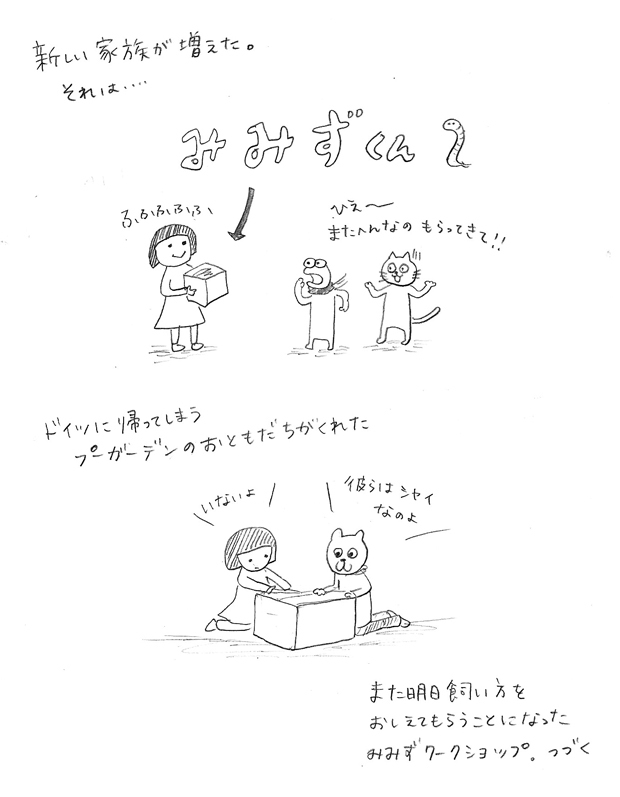 新しい家族が増えた。
それは‥‥
みみずくん
ふふふふふ、
ひえ〜
またへんなの もらってきて!!
ドイツに帰ってしまう
プーガーデンのおともだちがくれた
いないよ
彼らはシャイ
なのよ
また明日飼い方を
おしえてもらうことになった
みみずワークショップ。つづく